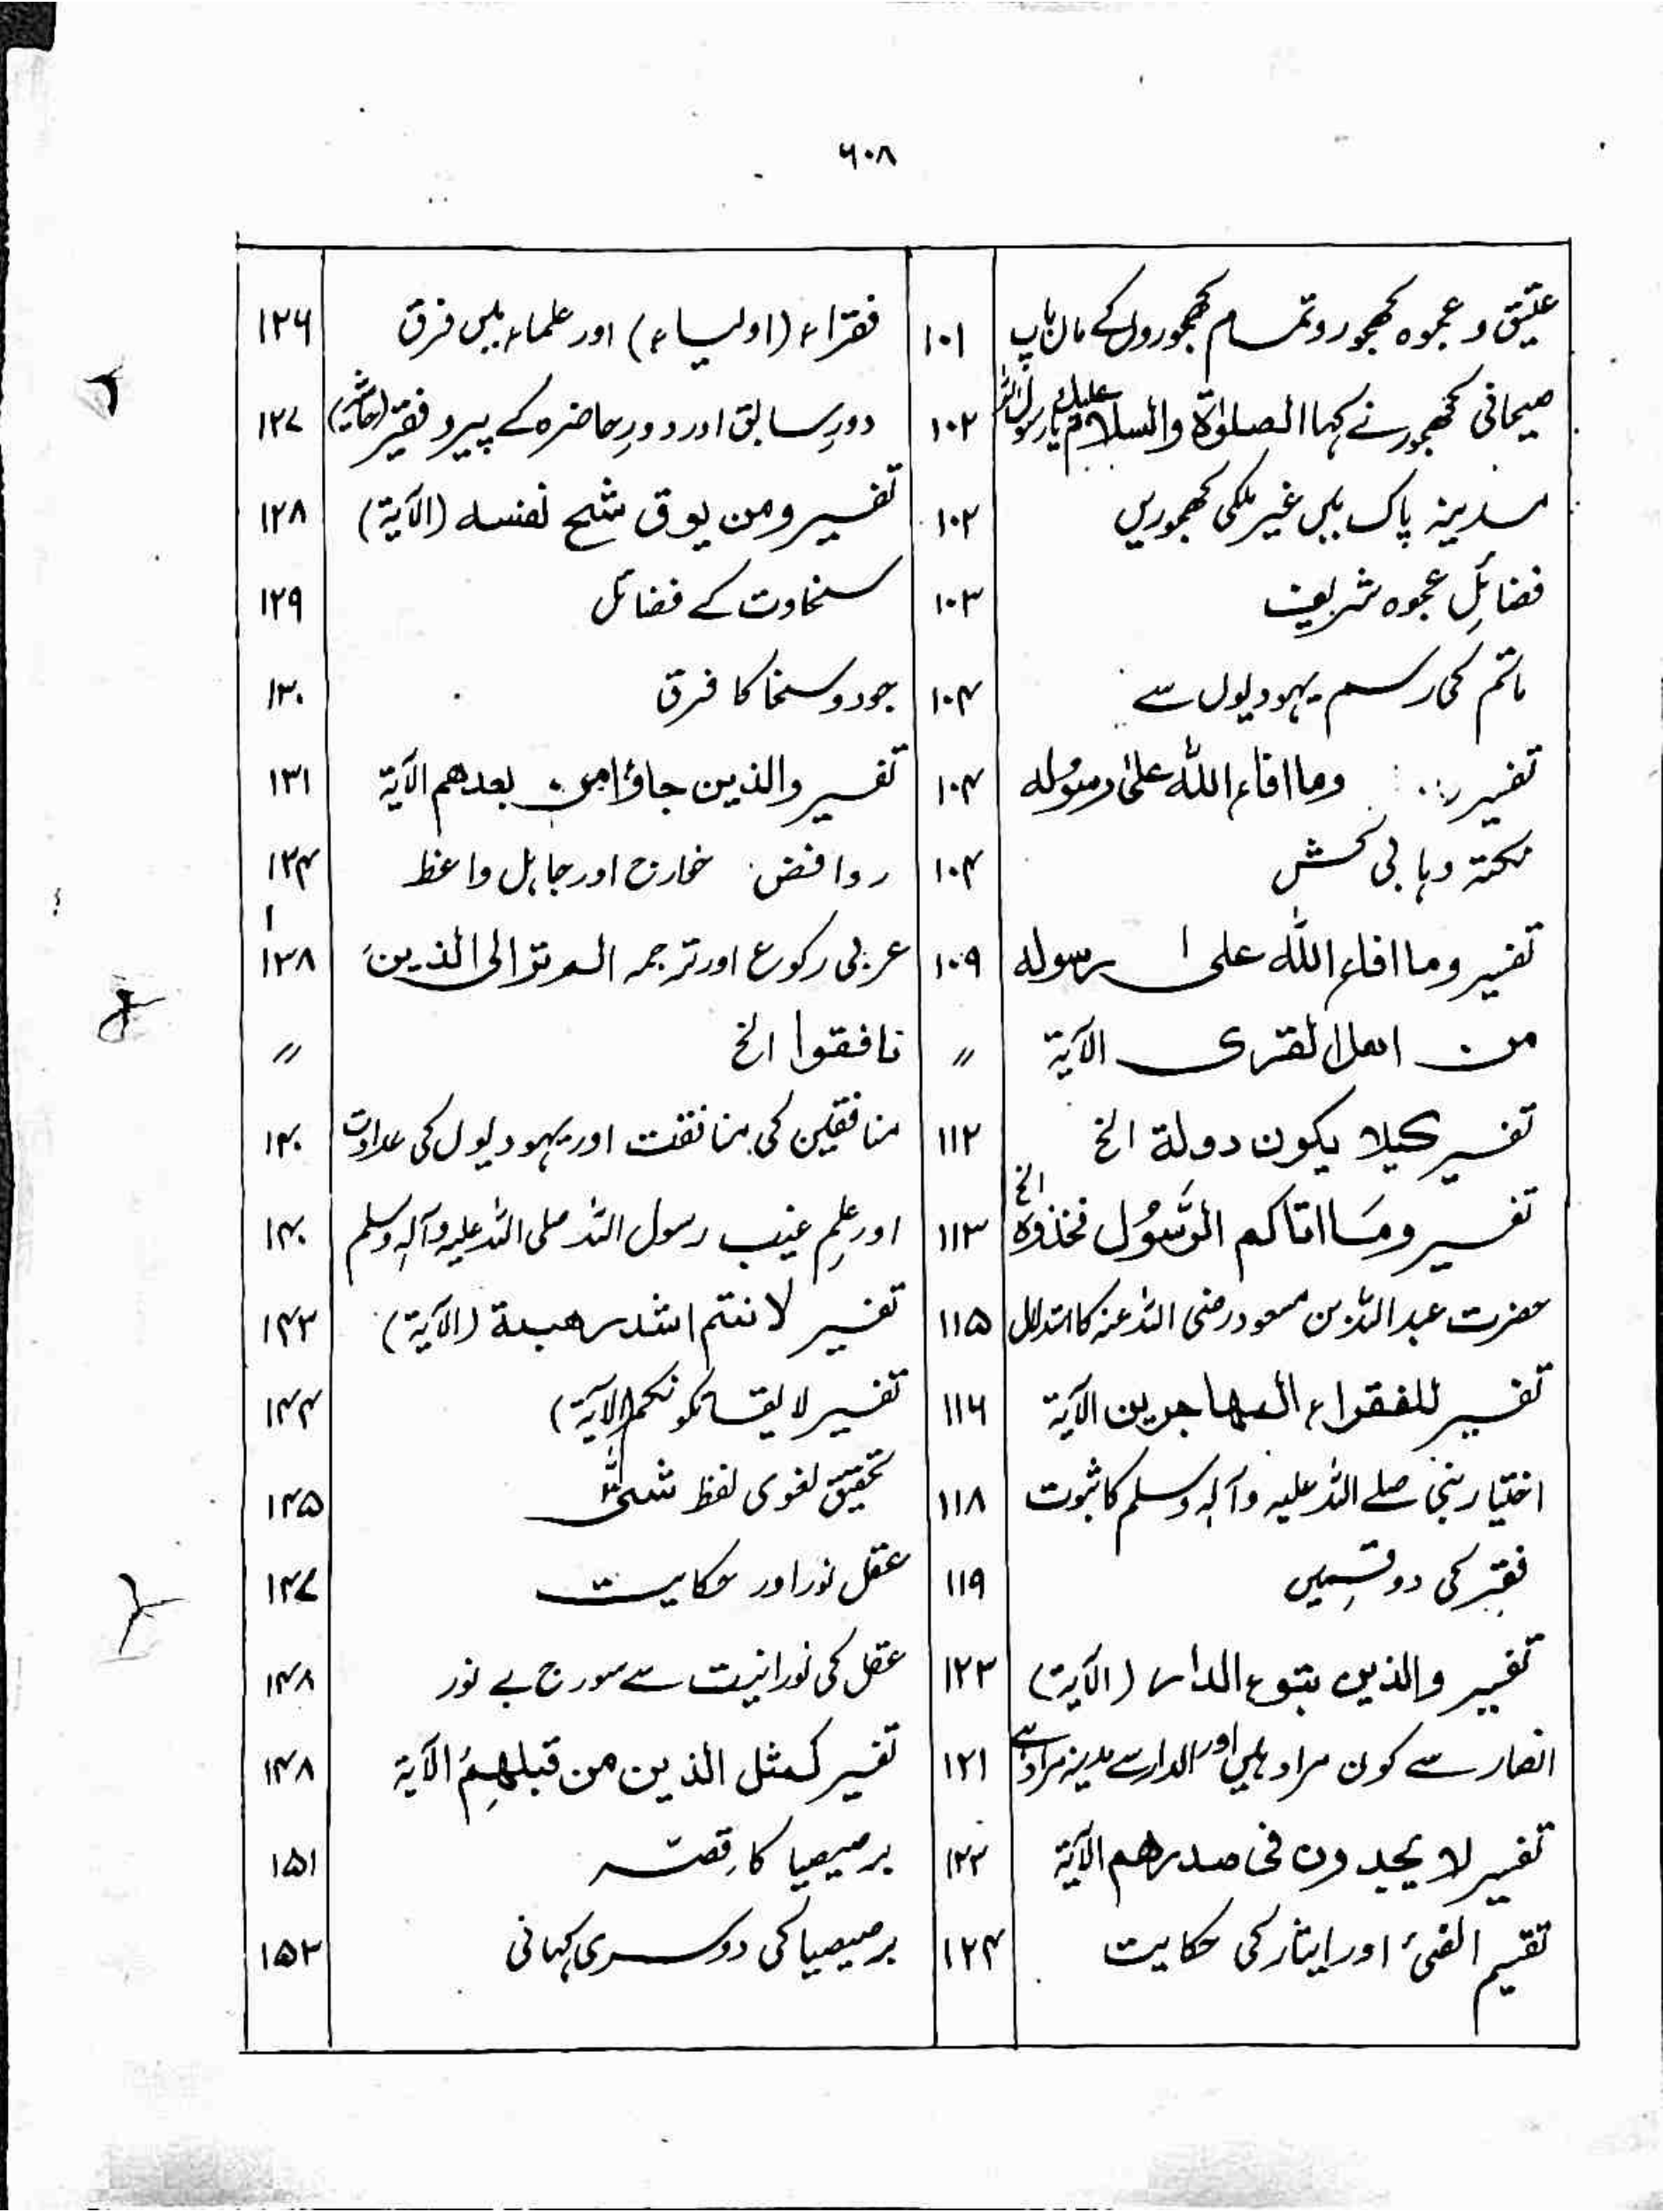 ۶۰۸
عتیق و عجوہ کھجور و تمام کھجوروں کے ماں باپ ۱۰۱
صیحانی کھجور نے کہا الصلوٰۃ والسلام علیک یا رسول اللہ ۱۰۲
مدینہ پاک میں غیر ملکی کھجوریں ۱۰۲
فضائلِ عجوہ شریف ۱۰۳
ماتم کی رسم یہودیوں سے ۱۰۴
تفسیر وما افاء اللہ علیٰ رسولہ ۱۰۴
نکتہ وہابی کش ۱۰۴
تفسیر وما افاء اللہ علی رسولہ ۱۰۹
من اھل القری الآیۃ 〃
تفسیر کیلا یکون دولۃ الخ ۱۱۲
تفسیر وما اتاکم الرسول فخذوہ الخ ۱۱۳
حضرت عبداللہ بن مسعود رضی اللہ عنہ کا استدلال ۱۱۵
تفسیر للفقراء المھاجرین الآیۃ ۱۱۶
اختیار نبی صلے اللہ علیہ وآلہ وسلم کا ثبوت ۱۱۸
فقر کی دو قسمیں ۱۱۹
تفسیر والذین بتوء الدار (الآیۃ) ۱۲۳
انصار سے کون مراد ہیں اور الدار سے مدینہ مراد ہے ۱۲۱
تفسیر لا یجدون فی صدرھم الآیۃ ۱۲۳
تقسیم الفئ اور ایثار کی حکایت ۱۲۴
فقراء (اولیاء) اور علماء میں فرق ۱۲۶
دورِ سابق اور دورِ حاضرہ کے پیر و فقیر (حاشیہ) ۱۲۷
تفسیر ومن یوق شح نفسہ (الآیۃ) ۱۲۸
سخاوت کے فضائل ۱۲۹
جود و سخا کا فرق ۱۳۰
تفسیر والذین جاؤا من بعدھم الآیۃ ۱۳۱
روافض خوارج اور جاہل واعظ ۱۳۴
عربی رکوع اور ترجمہ الم تر الی الذین ۱۳۸
نافقوا الخ 〃
منافقین کی منافقت اور یہودیوں کی عداوت ۱۴۰
اور علمِ غیب رسول اللہ صلی اللہ علیہ وآلہ وسلم ۱۴۰
تفسیر لانتم اشد رھبۃ (الآیۃ) ۱۴۳
تفسیر لا یقاتلونکم (الآیۃ) ۱۴۴
تحقیق لغوی لفظ شتّٰی ۱۴۵
عقل نور اور حکایت ۱۴۷
عقل کی نورانیت سے سورج بے نور ۱۴۸
تفسیر کمثل الذین من قبلھم الآیۃ ۱۴۸
برصیصیا کا قصہ ۱۵۱
برصیصیا کی دوسری کہانی ۱۵۳